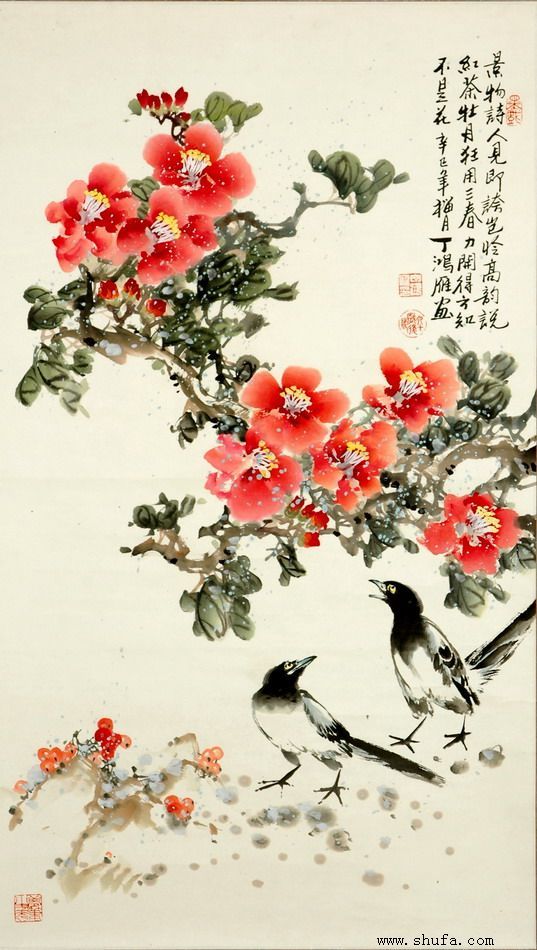 景物詩人見即誇豈怜高韵說
紅茶牡丹狂用三春力開得方知
不是花 辛巳年 月丁鴻雁画
www.shufa.com